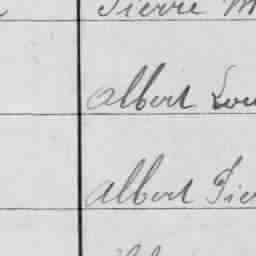 Pierre M
Albert Lou
Albert Pier